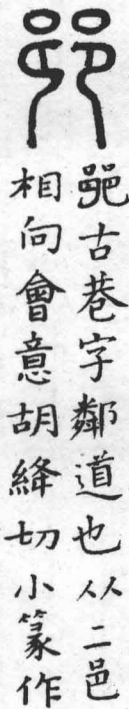 𨛜
𨛜古巷字鄰道也从二邑
相向會意胡絳切小篆作